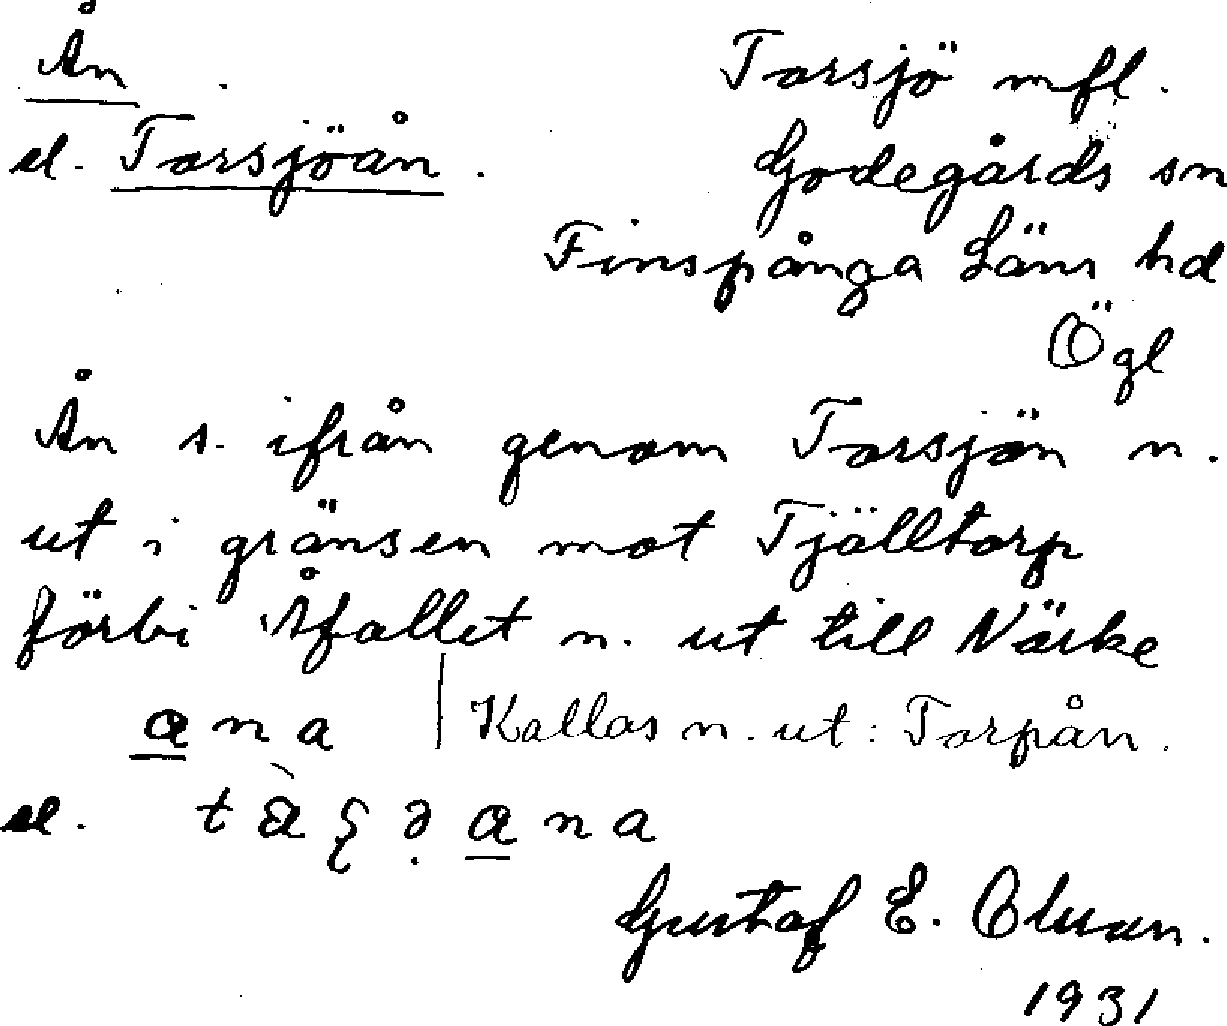 Ån
el. Torsjöån.
Torsjö mfl.
Godegårds sn
Finspånga Läns hd
Ögl
Ån s. ifrån genom Torsjön n.
ut i gränsen mot Tjälltorp
förbi Åfallet n. ut till Närke
ana | Kallas n. ut: Torpån.
el.
Gustaf E. Olsson.
1931